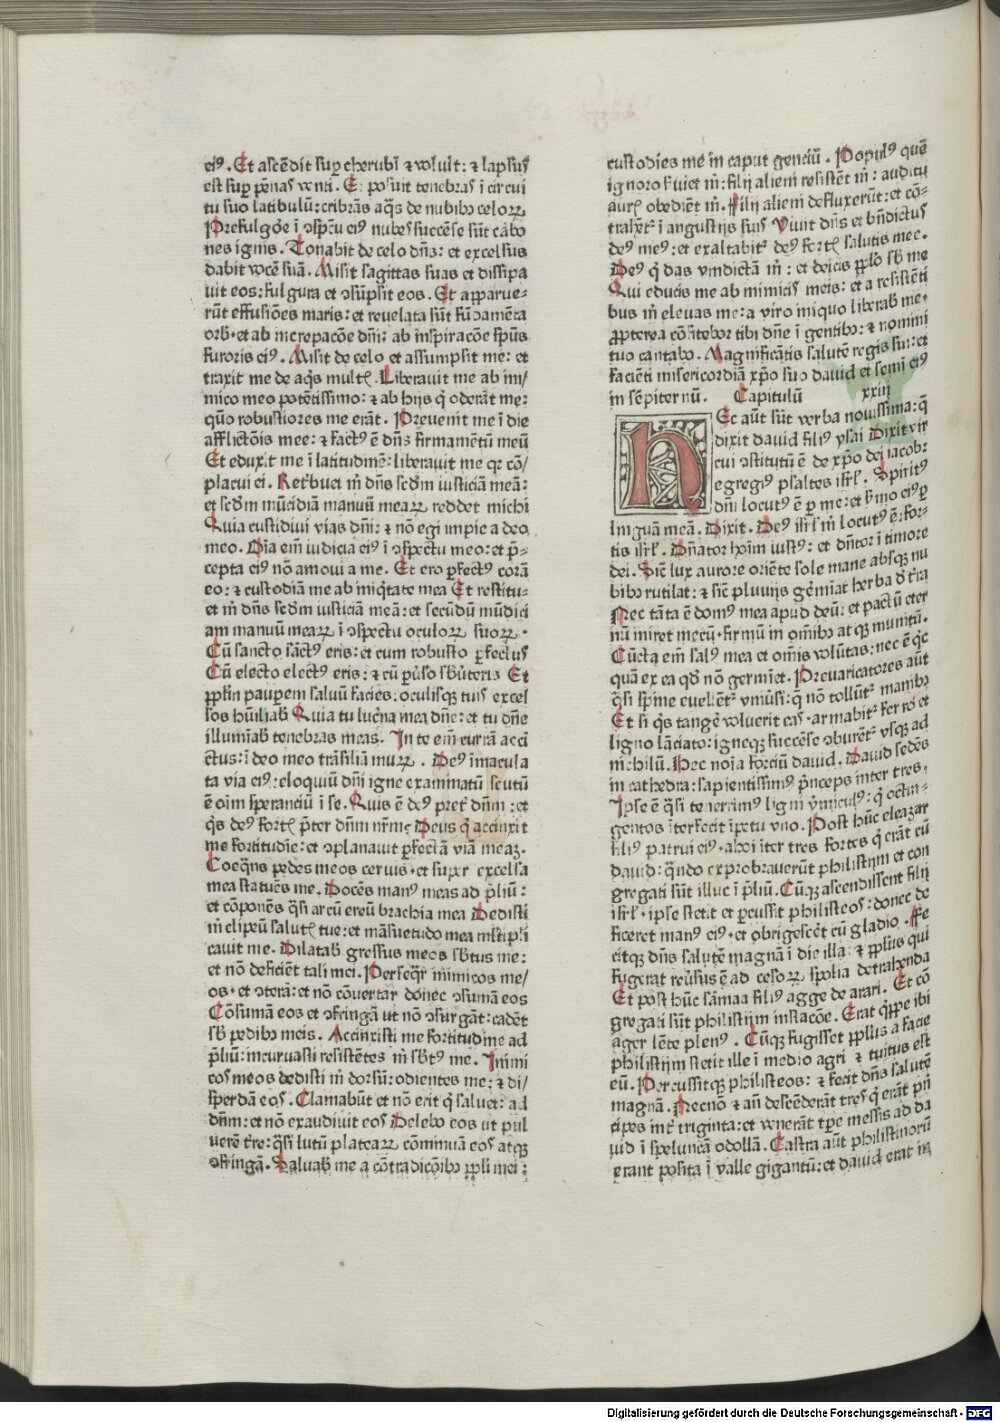 eiꝰ. Et ascēdit sup̱ cherubī ⁊ volult: ⁊ lapsus
est sup̱ pēnas vēnti. Et posuit tenebras ī circui
tu suo latibulū: cribrās aq̄s de nubibꝫ celoꝝ.
Prefulgōe ī ↄspc̄tu eiꝰ nubes succēse sūt cabo
nes ignis. Tonabit de celo dn̄s: et excelsus
dabit vocē suā. Misit sagittas suas et dissipa
uit eos: fulgura et ↄsūpsit eos. Et apparue⸗
rūt effusiōes maris: et reuelata sūt fūdamēta
orbꝭ. et ab increpacōe dn̄i: ab inspiracōe spūs
furoris eiꝰ. Misit de celo et assumpsit me: et
traxit me de aq̄s multꝭ. Liberauit me ab ini⸗
mico meo potētissimo: ⁊ ab hijs q̄ oderāt me:
qm̄ robustiores me erāt. Preuenit me ī die
afflictōis mee: ⁊ factꝰ ē dn̄s firmamētū meū
Et eduxit me ī latitudinē: liberauit me qꝛ cō⸗
placui ei. Retͥbuet m̄ dn̄s scd̄m iusticiam meā:
et scd̄m mūcidiam manuū meaꝝ reddet michi
Quia custidiui vias dn̄i: ⁊ nō egi impie a deo
meo. Oīa em̄ iudicia eiꝰ ī ↄspectu meo: et p̄⸗
cepta eiꝰ nō amoui a me. Et ero ꝑfectꝰ corā
eo: ⁊ custodiā me ab iniq̄tate mea Et restitu⸗
et m̄ dn̄s scd̄m iusticiā meā: et secūdū mūdici
am manuū meaꝝ ī ↄspectu oculoꝝ suoꝝ.
Cū sancto sāctꝰ eris: et cum robusto ꝑfectus
Cū electo electꝰ eris: ⁊ cū ꝑuͥso sb̄uteris Et
pp̄l̄m pauꝑem saluū facies: oculisqꝫ tuis excel
sos hūiliabꝭ Quia tu lucͥna mea dn̄e: et tu dn̄e
illumīabꝭ tenebras meas. In te em̄ currā acci
ctus: ī deo meo trāsiliā muꝝ. Deꝰ īmacula
ta via eiꝰ: eloquiū dn̄i igne examinatū scutū
ē oīm sperancīū ī se. Quis ē deꝰ pret̄ dn̄m: et
q̄s deꝰ fortꝭ p̄ter dn̄m nr̄m: Deus q̄ accinxit
me fortitudīe: et ↄplanauit ꝑfectā viā meaꝫ.
Coeq̄ns pedes meos ceruis. et super excelsa
mea statuēs me. Docēs manꝰ meas ad p̄liū:
et cōponēs q̄si arcū ereū brachia mea Dedisti
m̄ clipeū salutꝭ tue: et māsuetudo mea mltipli
cauit me. Dilatabꝭ gressus meos sb̄tus me:
et nō deficiēt tali mei. Perseq̄r inimicos me⸗
os. et ↄterā: et nō cōuertar donec ↄsumā eos
Cōsumā eos et ↄfringā ut nō ↄsurgāt: cadēt
sb̄ pedibꝫ meis. Accinxisti me fortitudine ad
p̄liū: incuruasti resistētes m̄ sb̄tꝰ me. Inimi
cos meos dedisti m̄ dorsū: odientes me: ⁊ di⸗
sperdā eos. Clamabūt et nō erit q̄ saluet: ad
dn̄m: et nō exaudiuit eos Delebo eos ut pul
uerē tr̄e: q̄si lutū plateaꝝ cōminuā eos atqꝫ
ↄfringā. Saluabꝭ me a cōtradicōibꝫ pp̄li mei:
custodies me in caput genciū. Populꝰ quē
ignoro sͥuiet m̄: filij alieni resistēt m̄: auditu
aurꝭ obediēt m̄. Filij alieni defluxerūt: et cō⸗
trahētꝭ ī angustijs suis Viuit dn̄s et bn̄dictus
deꝰ meꝰ: et exaltabitꝭ deꝰ fortꝭ salutis mee.
Deꝰ q̄ das vindictā m̄: et deicis pp̄lo sb̄ me
Qui educis me ab inimicis meis: et a resistēti
bus m̄ eleuas me: a viro iniquo liberabꝭ me.
ꝓpterea cōfitebor tibi dn̄e ī gentibꝫ: ⁊ nomini
tuo cantabo. Magnificātis salutē regis sui: et
faciēti misericordiā xp̄o suo dauid et semi eiꝰ
in sēpiternū. Capitulū xxiij
HEc aūt sūt verba nouissima: q̄
dixit dauid filiꝰ ysai Dixit vir
cui ↄstitutū ē de xp̄o dei iacob:
egregiꝰ psaltes isrl̄. Spiritꝰ
dn̄i locutꝰ ē ꝑ me: et sͥmo eiꝰ ꝑ
linguā meā. Dixit. Deꝰ isrl̄ m̄ locutꝰ ē: for⸗
tis isrl̄. Dn̄ator hoīm iustꝰ: et dn̄tor ī timore
dei. Sic̄ lux aurore oriēte sole mane absqꝫ nu
bibꝫ rutilat: ⁊ sic̄ pluuijs gēmīat herba d̄ tr̄ra
Nec tāta ē domꝰ mea apud deū: et pactū eter
nū iniret mecū. firmū in om̄ibꝫ atqꝫ munitū.
Cūcta em̄ salꝰ mea et om̄is volūtas: nec ē q̄c
quā ex ea qd̄ nō germīet. Preuaricatores aūt
q̄si spīne euellētꝭ vniūsi: q̄ nō tollūtꝭ manibꝫ
Et si q̄s tangē voluerit eas. armabitꝭ ferro et
ligno lāciato: igneqꝫ succēse ↄburētꝭ vsqꝫ ad
nichilū. Hec noīa forciū dauid. Dauid sedēs
in cathedra: sapientissimꝰ p̄nceps inter tres.
Ipse ē q̄si tenerrimꝰ ligni v̄miculꝰ: q̄ octin⸗
gentos īterfecit īpetu vno. Post hūc eleazar
filiꝰ patrui eiꝰ. ahoi īter tres fortes q̄ erāt cū
dauid: q̄ndo exprobrauerūt philistijm et con
gregati sūt illuc ī p̄liū. Cūqꝫ ascendissent filij
isrl̄. ipse stetit et ꝑcussit philisteos: donec de
ficeret manꝰ eiꝰ. et obrigescēt cū gladio. Fe
citqꝫ dn̄s salutē magnā ī die illa: ⁊ pp̄lus qui
fugerat reūsus ē ad cesoꝝ spolia detrahenda
Et post hūc sāmaa filiꝰ agge de arari. Et cō
gregati sūt philistijm instacōe. Erat q̄ꝑpe ibi
ager lēte plenꝰ. Cūqꝫ fugisset pp̄lus a facie
philistijm stetit ille ī medio agri ⁊ tuitus est
eū. Percussitqꝫ philisteos: ⁊ fecit dn̄s salutē
magnā. Necnō ⁊ an̄ descēderāt tres q̄ erāt p̄n
cipes intͥ triginta: et venerāt tꝑe messis ad da
uid ī speluncā odollā. Castra aūt philistinorū
erant posita ī valle gigantū: et dauid erat in